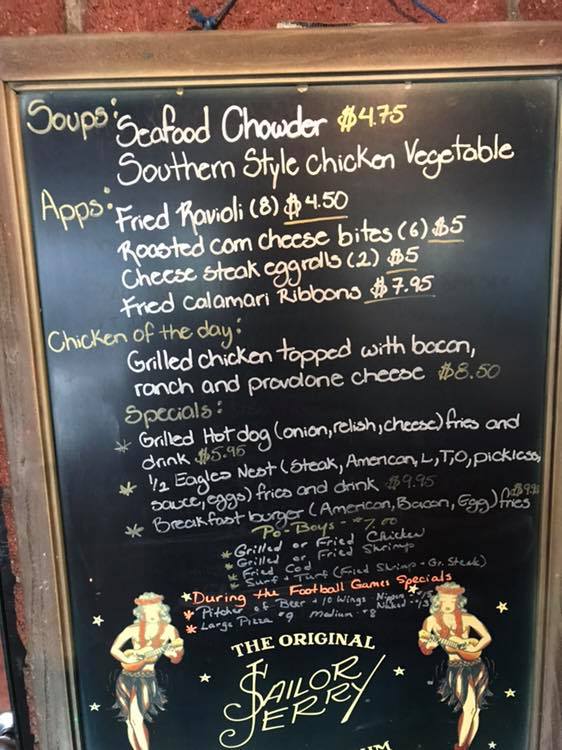 Soups:
Seafood Chowder $4.75
Southern Style chicken Vegetable
Apps:
Fried Ravioli (8) $4.50
Roasted corn cheese bites (6) $5
Cheese steak eggrolls (2) $5
Fried Calamari Ribbons $7.95
Chicken of the day:
Grilled chicken topped with bacon,
ranch and provolone cheese $8.50
Specials:
* Grilled Hot dog (onion, relish, cheese) fries and
drink $5.95
* 1/2 Eagles Nest (Steak, American, L, T, O, pickless,
sauce, eggs) fries and drink $9.95
* Breakfast burger (American, Bacon, Egg) fries $9.95
Po-Boys - $7.00
* Grilled or Fried Chicken
* Grilled or Fried Shrimp
* Fried Cod
* Surf + Turf (Fried Shrimp + Gr. Steak)
* During the Football Games Specials
* Pitcher of Beer + 10 Wings
* Large Pizza $9 Medium $8
THE ORIGINAL
SAILOR
JERRY